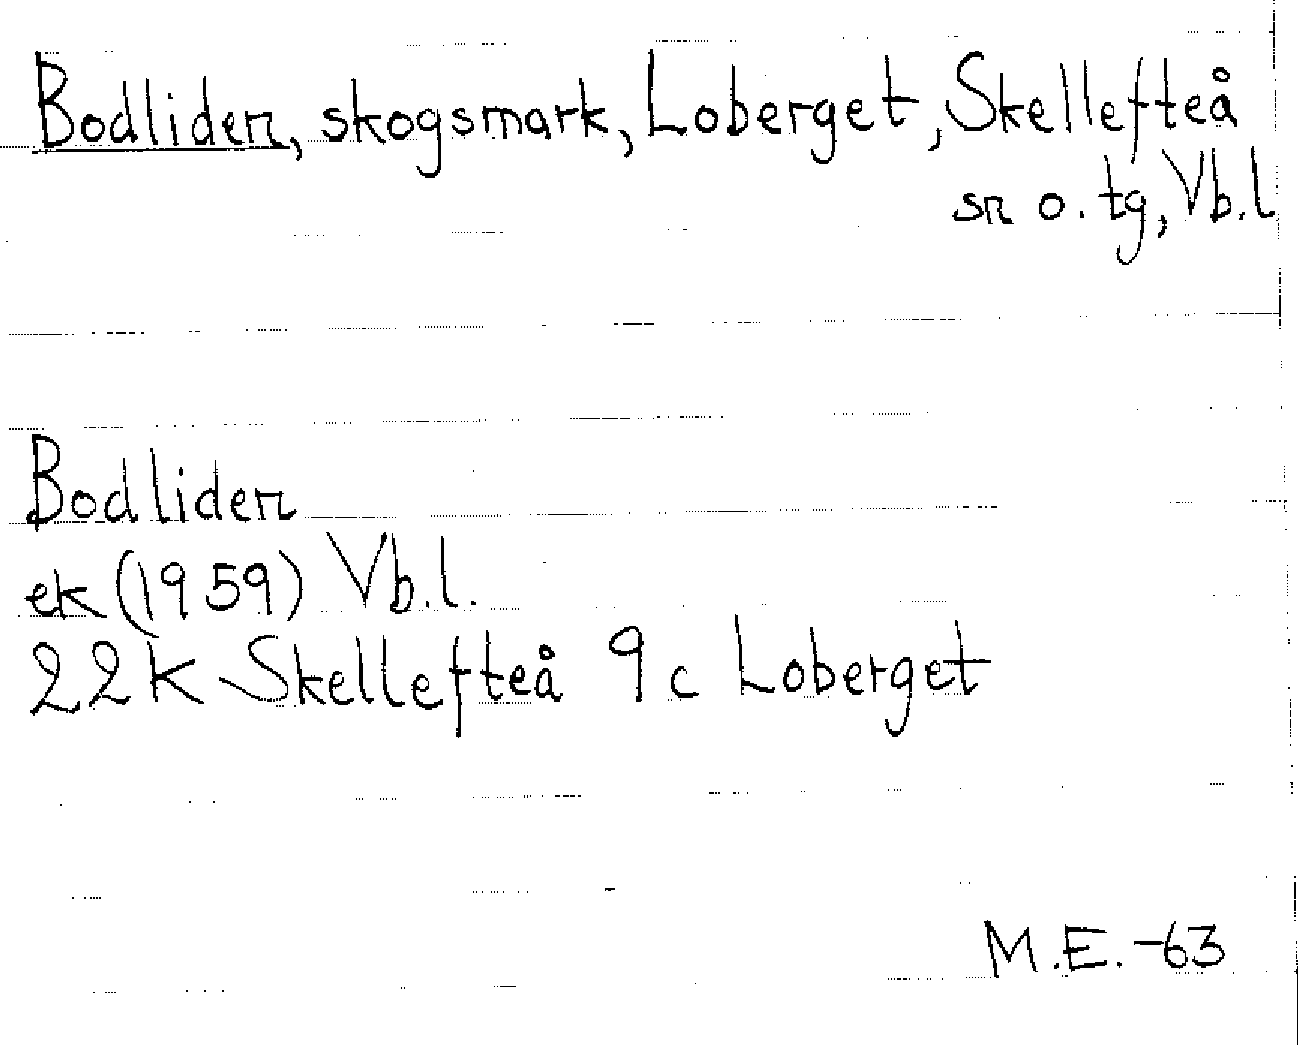 Bodliden, skogsmark, Loberget, Skellefteå
sn o. tg, Vb.l
Bodliden
ek (1959) Vb.l.
22K Skellefteå 9c Loberget
M.E. -63